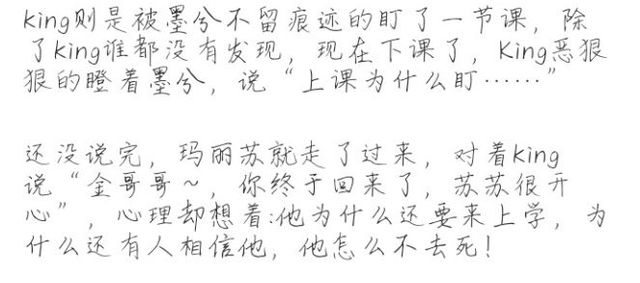 king则是被墨兮不留痕迹的盯了一节课，除
了king谁都没有发现，现在下课了，King恶狠
狠的瞪着墨兮，说“上课为什么盯……”
还没说完，玛丽苏就走了过来，对着king
说“金哥哥~，你终于回来了，苏苏很开
心”，心理却想着:他为什么还要来上学，为
什么还有人相信他，他怎么不去死！